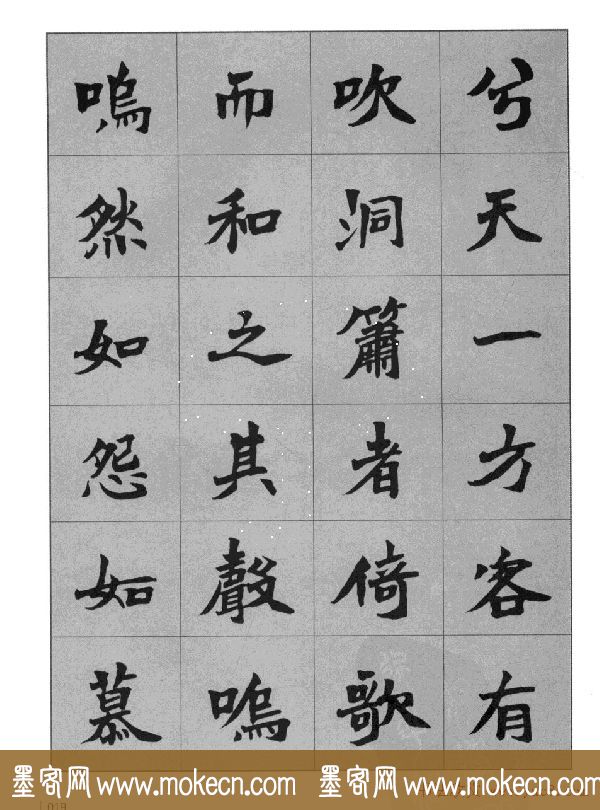 兮天一方客有
吹洞簫者倚歌
而和之其聲嗚
嗚然如怨如慕
墨客网 www.mokecn.com 墨客网 www.mokecn.com
019